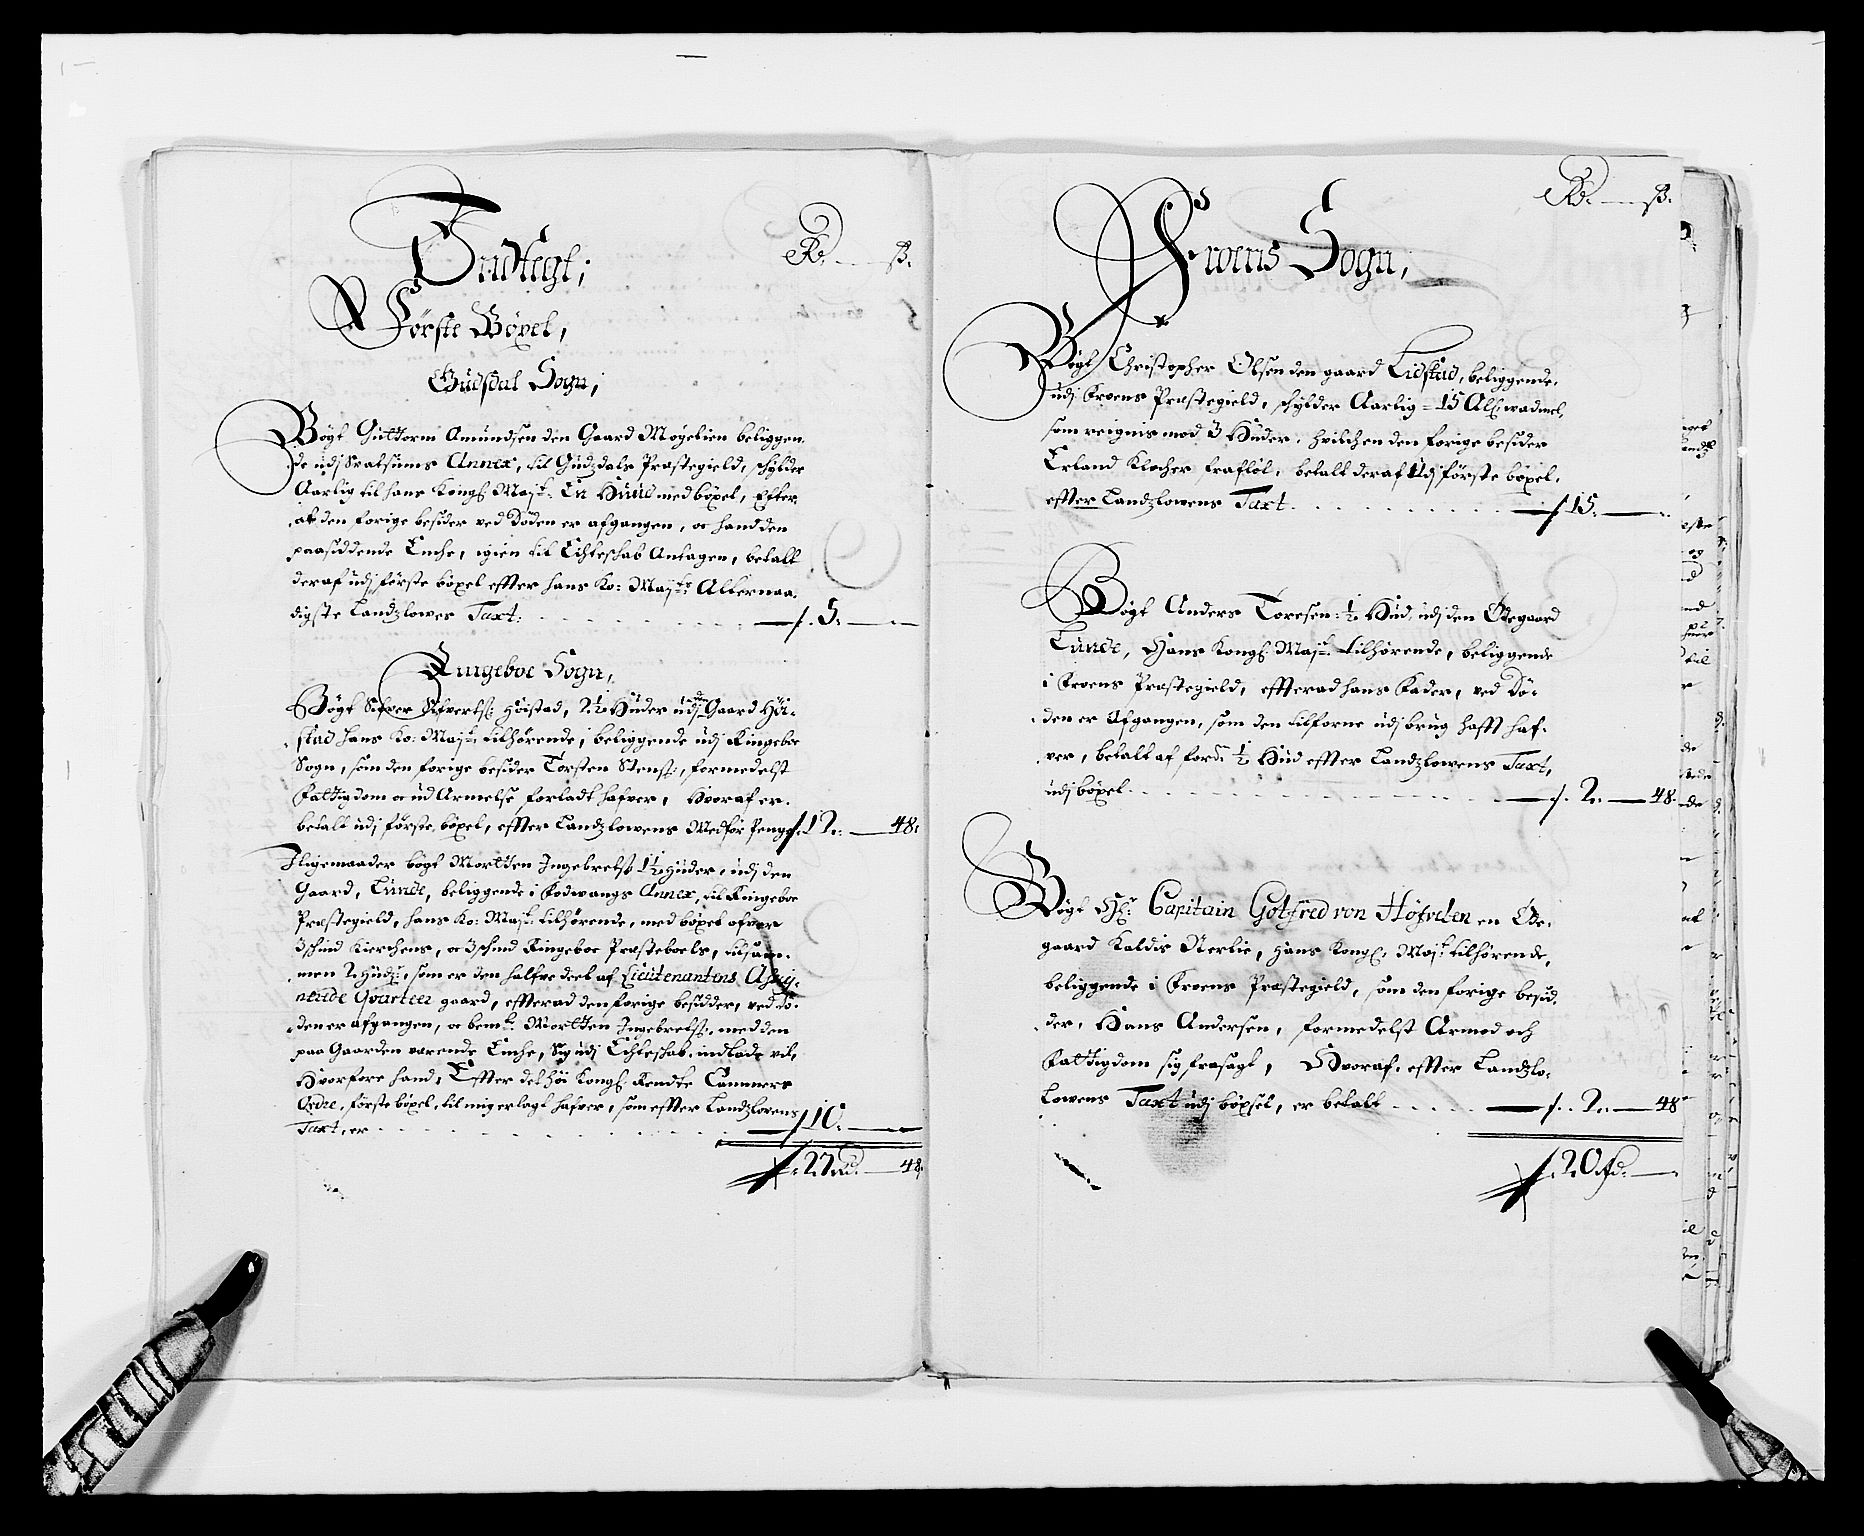 Indtegt;
Rd. ß.
Første Böxel,
Gudsdal Sogn;
Bögt Guttorm Amundsen den Gaard Møgelien beliggen,
de udj Svatsums Annex, til Gudzdals Præstegield, schylder
Aarlig til hans Kongl: Maj:t En Huud med böxel, Efter,
at den forige besider ved Döden er afgangen, oc hand den
paasiddende Enche, igien til Echteschab Antagen, betalt
deraf udj første böxel effter hans Ko: Maj:ts Allernaa,
digste Landzlowes Taxt: 5:
Ringeboe Sogn,
Bögt Sifver Sifverts: Höistad, 2½ Huder udj den Gaard Höi-
stad hans Ko: Maj:t tilhørende, beliggende udj Ringeboe
Sogn, som den forige besider Torsten Stens:, formedelst
fattigdom oc ud Armelse forladt hafver, Hvoraf er
betalt udj første böxel, effter Landzlowens Medför Penge 12: 48:
Iligemaader bögt Mortten Ingebrets: 1½ Huder, udj den
Gaard, Lunde, beliggende i Fodwangs Annex, til Ringeboe
Præstegield, hans Ko: Maj:t tilhørende, med böxel ofver
3 schind Kirchens, oc 3 schind Ringeboe Præsteboels, tilsam-
men 2 Hud:, som er den halfve deel af Lieutenantens
Qvarteer gaard, effterad den forige besidder, ved Dö-
den er afgangen, oc bem:te Mortten Ingebrets: med den
paa Gaarden varende Enche, Sig udj Echteschab, indlade vil,
Hvorfore hand, Effter det höi Kongl: Rendte Cammers
Ordre, første böxel, til mig erlagt hafver, som effter Landzlovens
Taxt, er 10:
27 rd. 48:
Froens Sogn,
Rd. ß.
Bögt Christopher Olsen den gaard Lidstad, beliggende
udj Froens Præstegield, schylder Aarlig = 15 Al: wadmel,
som reignis mod 3 Huder, hvilchen den forige besider
Erland Klocher frafløt, betalt deraf udj første böxel,
effter Landzlowens Taxt 15:
Bögt Anders Toresen: ½ Hud, udj den Ødegaard
Lunde, Hans Kongl: Maj:t tilhørende, beliggende
i Froens Præstegield, effterad hans Fader, ved Dö-
den er Afgangen, som den tilforne udj brug hafft haf-
ver, betalt af ford: ½ Hud effter Landzlowens Taxt,
udj böxel 2: 48:
Bögt H:r Capitain Gotfred von Höfveten en Øde-
gaard Kaldis Nerlie, Hans Kongl: Maj:t tilhørende,
beliggende i Froens Præstegield, som den forige besid,
der, Hans Andersen, formedelst Armod och
Fattigdom sig frasagt, Hvoraf, effter Landzlo-
lowens Taxt udj böxsel, er betalt 2: 48
20 rd.